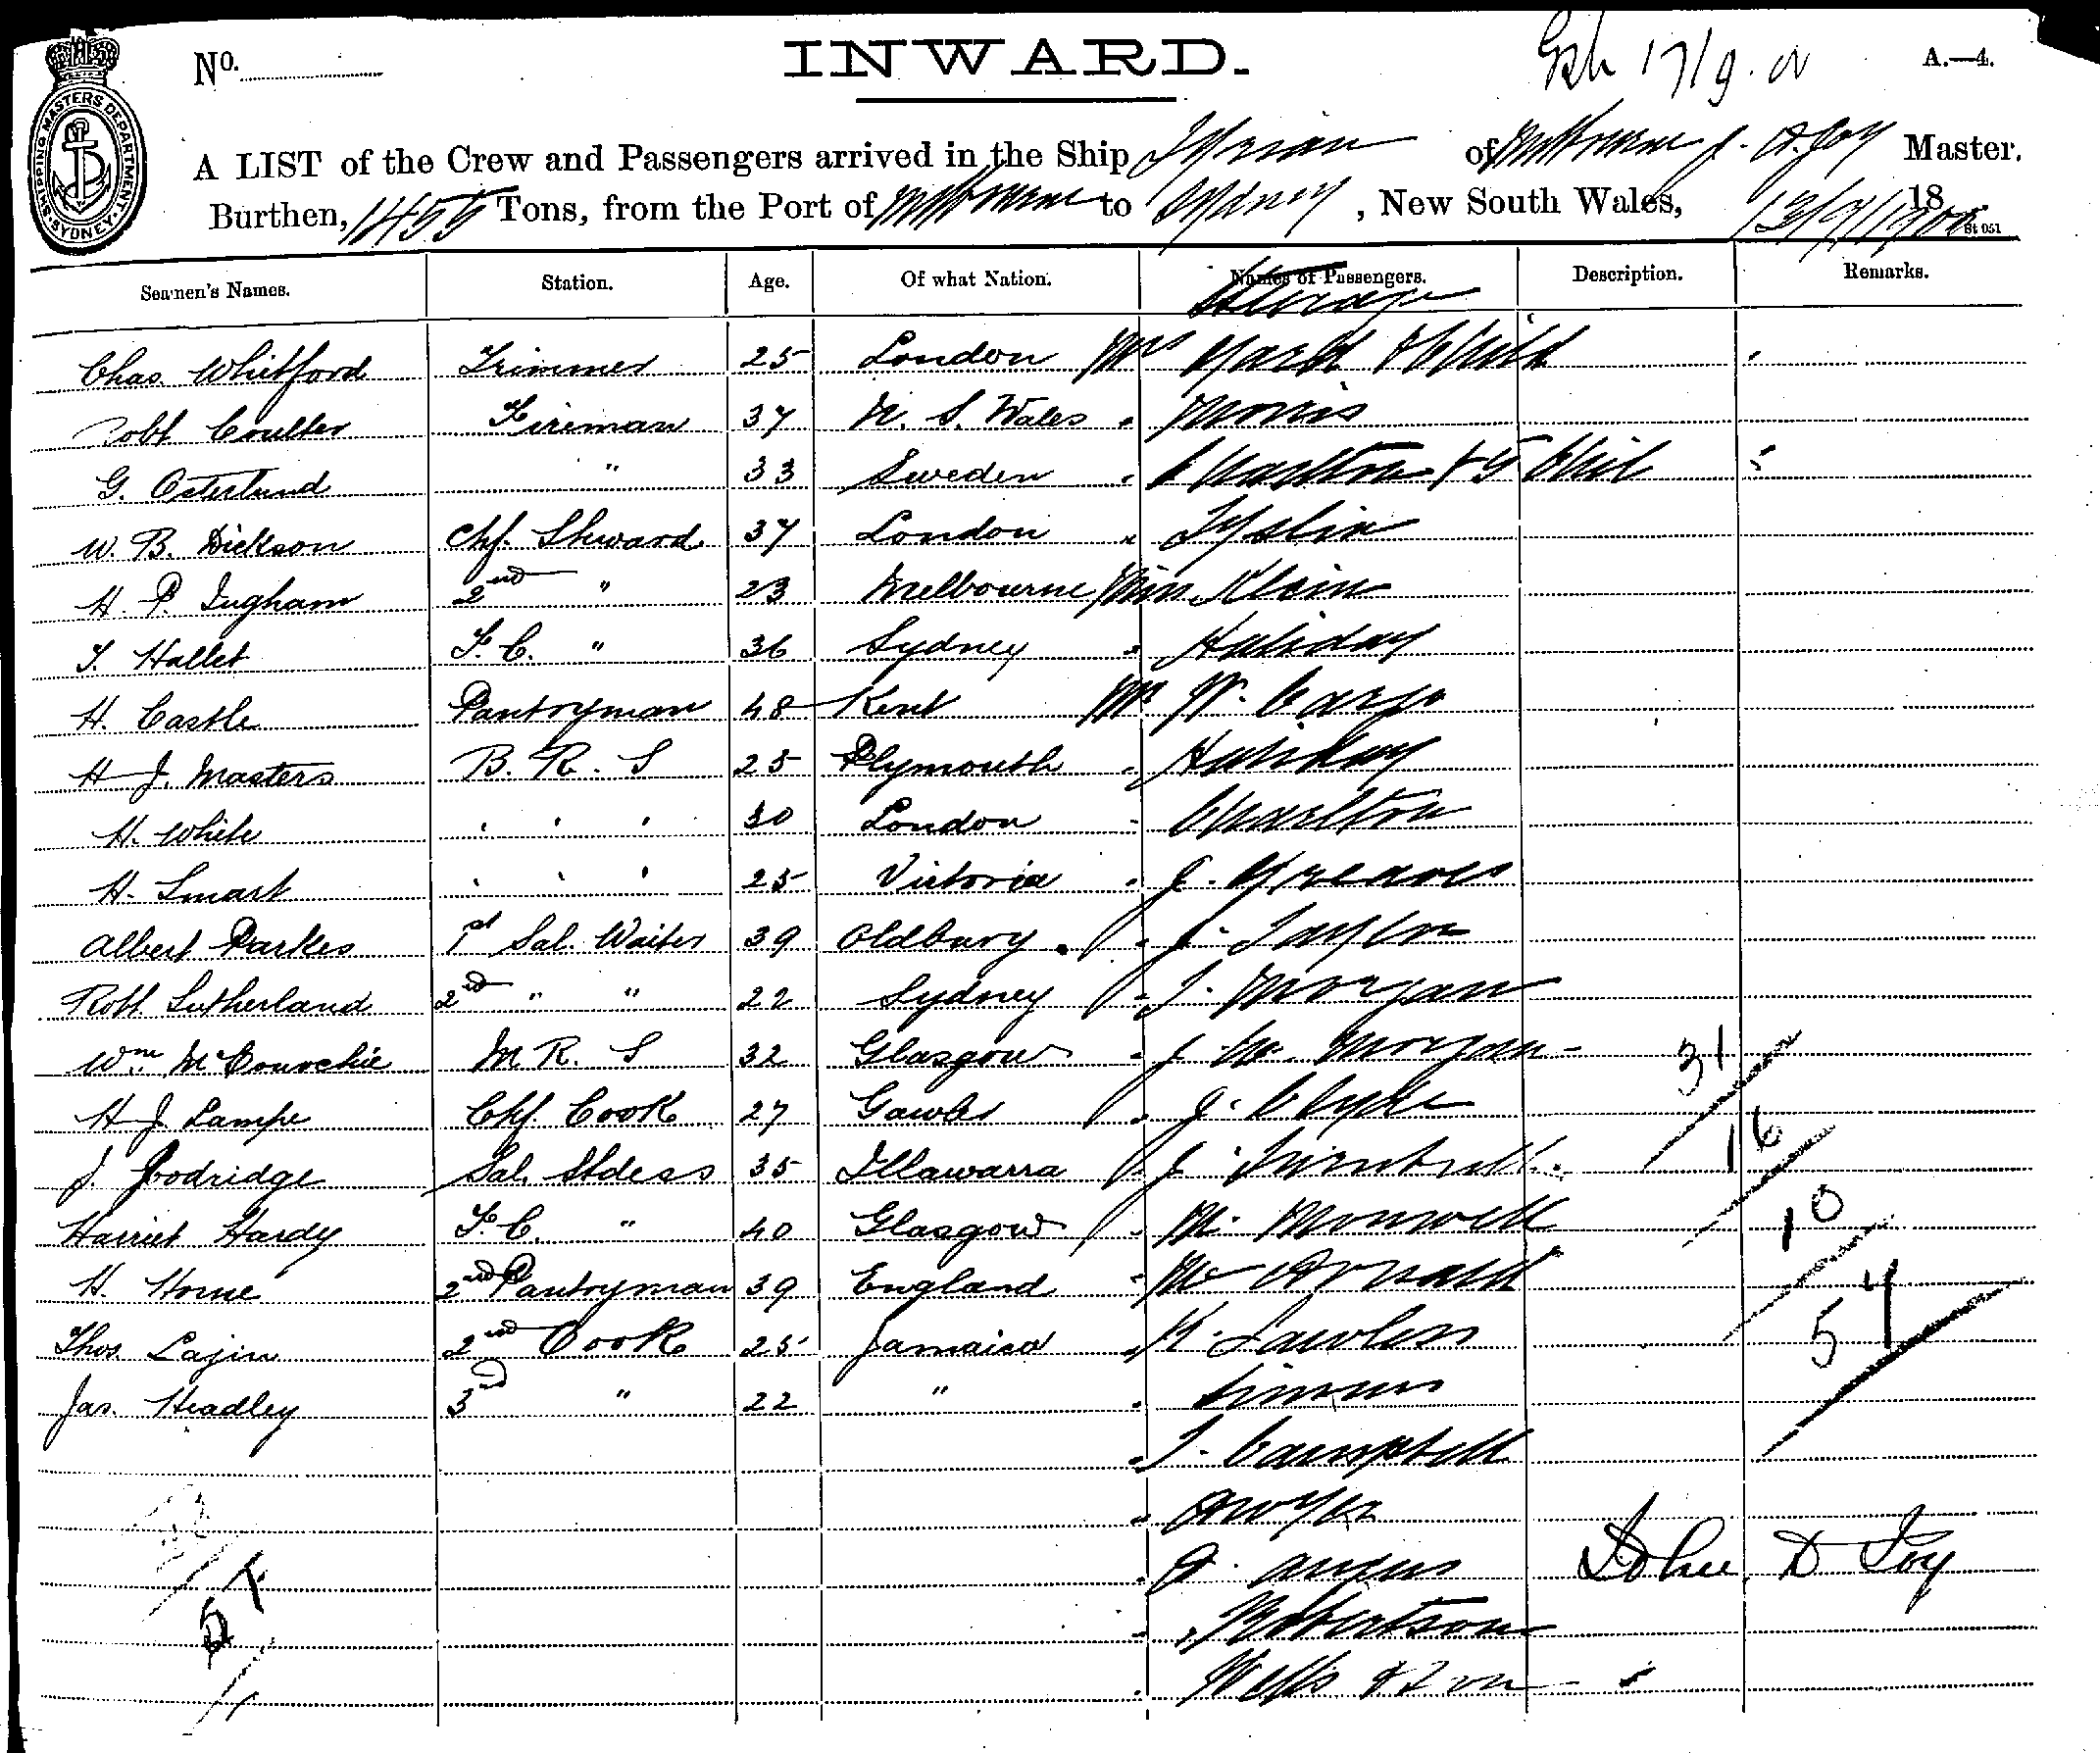 No.
INWARD.
17/9.00
A.—4.
SHIPPING MASTERS DEPARTMENT. SYDNEY.
A LIST of the Crew and Passengers arrived in the Ship Tyrian of Melbourne J. D. Joy Master.
Burthen, 1455 Tons, from the Port of Melbourne to Sydney, New South Wales, 13/9/1900 18
St 051
Seamen's Names. Station. Age. Of what Nation. Names of Passengers. Description. Remarks.
Steerage
Chas. Whitford Trimmer 25 London Mrs & Child
Robt Coulter Fireman 37 N. S. Wales " Morris
G. Osterlund " 33 Sweden " Charlton & 5 Chil
W. B. Dickson Chf. Steward 37 London "
H. P. Ingham 2nd " 23 Melbourne Miss Klein
T. Hallet F. C. " 36 Sydney " Haliday
H. Castle Pantryman 48 Kent Mr W.
H J. Masters B. R. S 25 Plymouth " Haliday
H. White " " " 30 London " Charlton
H. Smart " " " 25 Victoria " J. Greaves
Albert Parkes 1st Sal. Waiter 39 Oldbury " J. Taylor
Robt. Sutherland 2nd " " 22 Sydney " T. Morgan
Wm. McConochie M R. S 32 Glasgow " J. W. Morgan
H J Lampe Chf. Cook 27 Gawler " J. Clyde
J. Goodridge Sal. Stdess 35 Illawarra " J. Turnbull
Harriet Hardy F. C. " 40 Glasgow " M.
H. Horne 2nd Pantryman 39 England " W Arnold
Thos. Lajin 2nd Cook 25 Jamaica " K. Lawless
Jas. Headley 3rd " 22 " "
" T. Campbell
"
" Angus
" Robertson
" Wells & Son
31
16
10
57
John D Joy
57